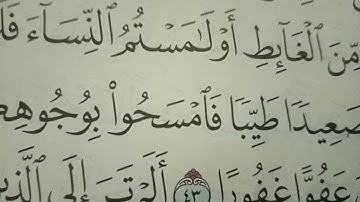 مِّنَ ٱلْغَآئِطِ أَوْ لَٰمَسْتُمُ ٱلنِّسَآءَ
صَعِيدًا طَيِّبًا فَٱمْسَحُوا۟ بِوُجُوهِ
عَفُوًّا غَفُورًا ٤٣ أَلَمْ تَرَ إِلَى